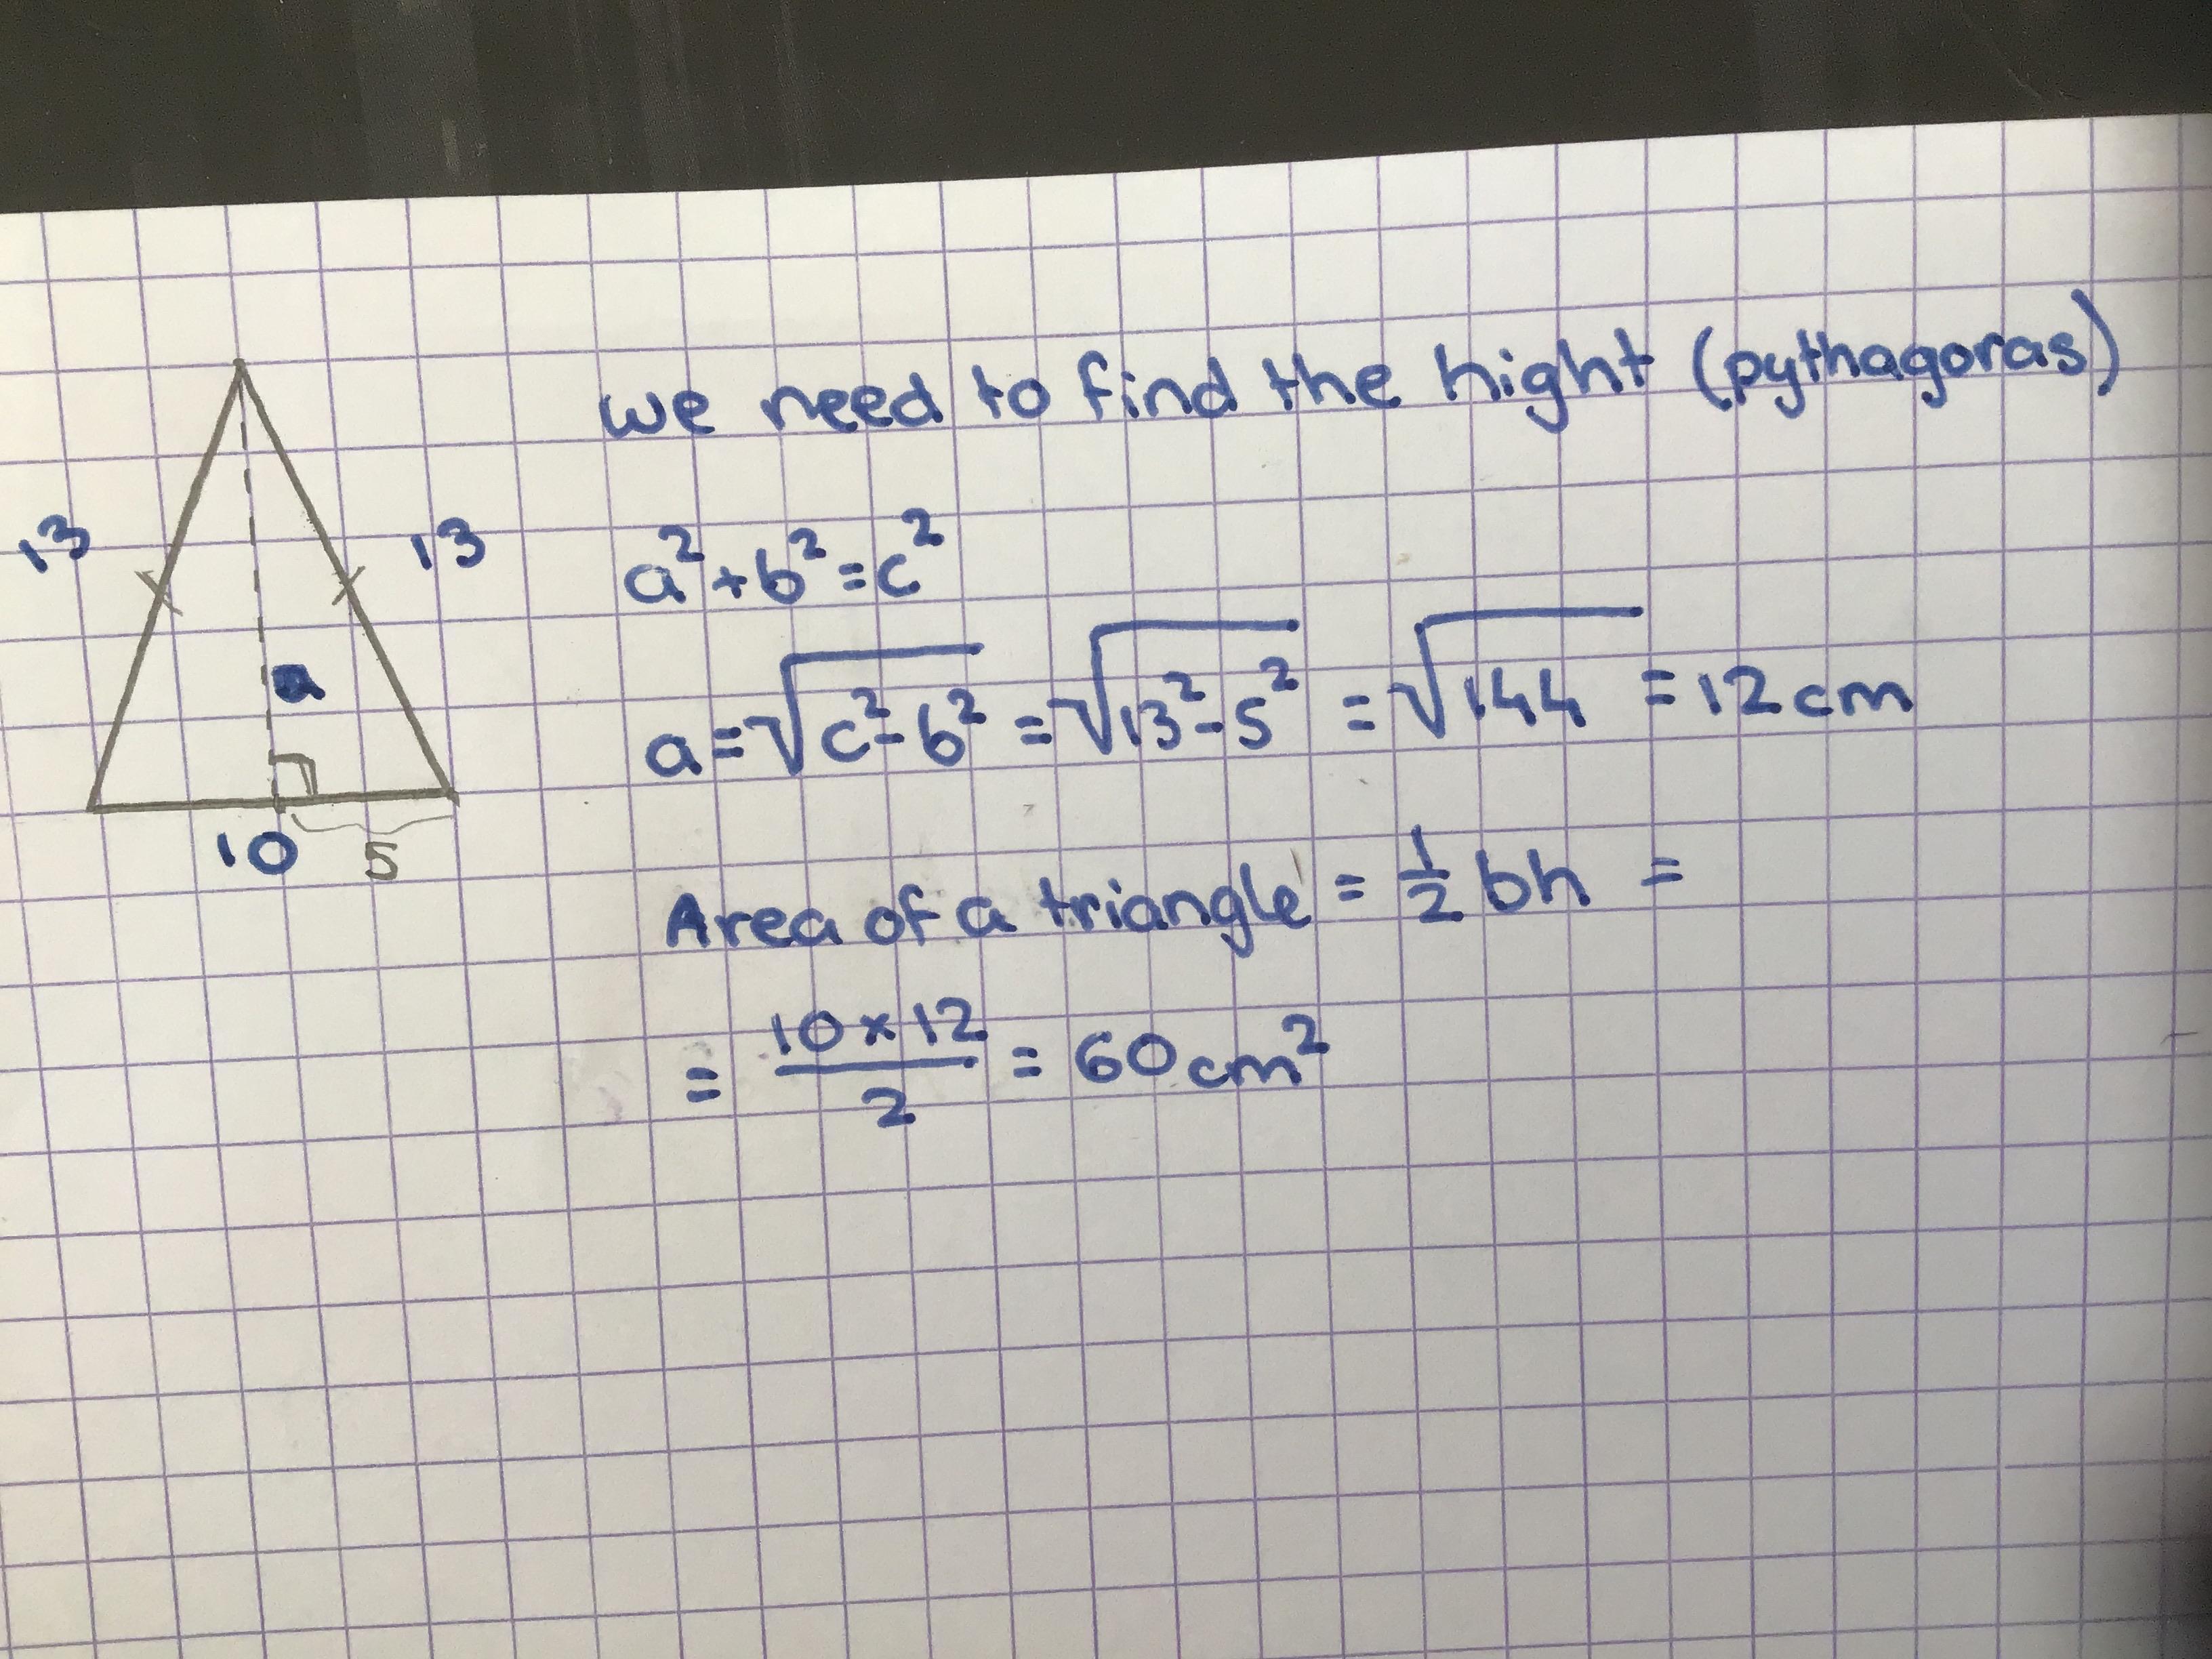 we need to find the hight (pythagoras)
13
13
a²+b²=c²
a
a=√c²-b² = √13²-5² = √144 = 12cm
10
5
Area of a triangle = 1/2 bh =
= 10×12/2 = 60cm²